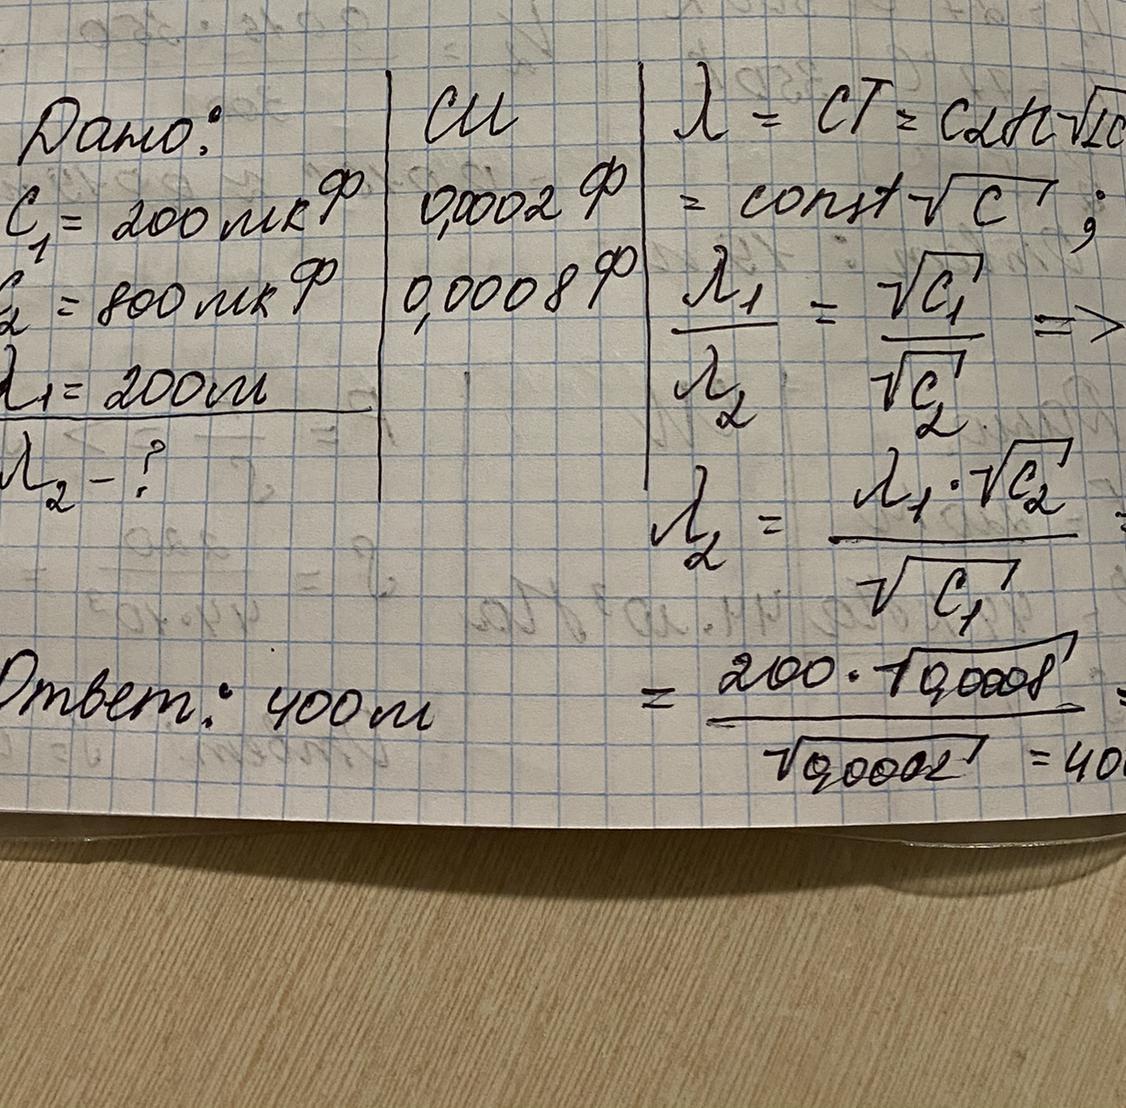 Дано:
C₁ = 200 мкФ
C₂ = 800 мкФ
λ₁ = 200м
λ₂ - ?
СИ
0,0002 Ф
0,0008 Ф
λ = cT = c2π√LC
= const √C ;
λ₁/λ₂ = √C₁/√C₂ =>
λ₂ = λ₁·√C₂/√C₁ =
= 200·√0,0008/√0,0002 = 400
Ответ: 400м